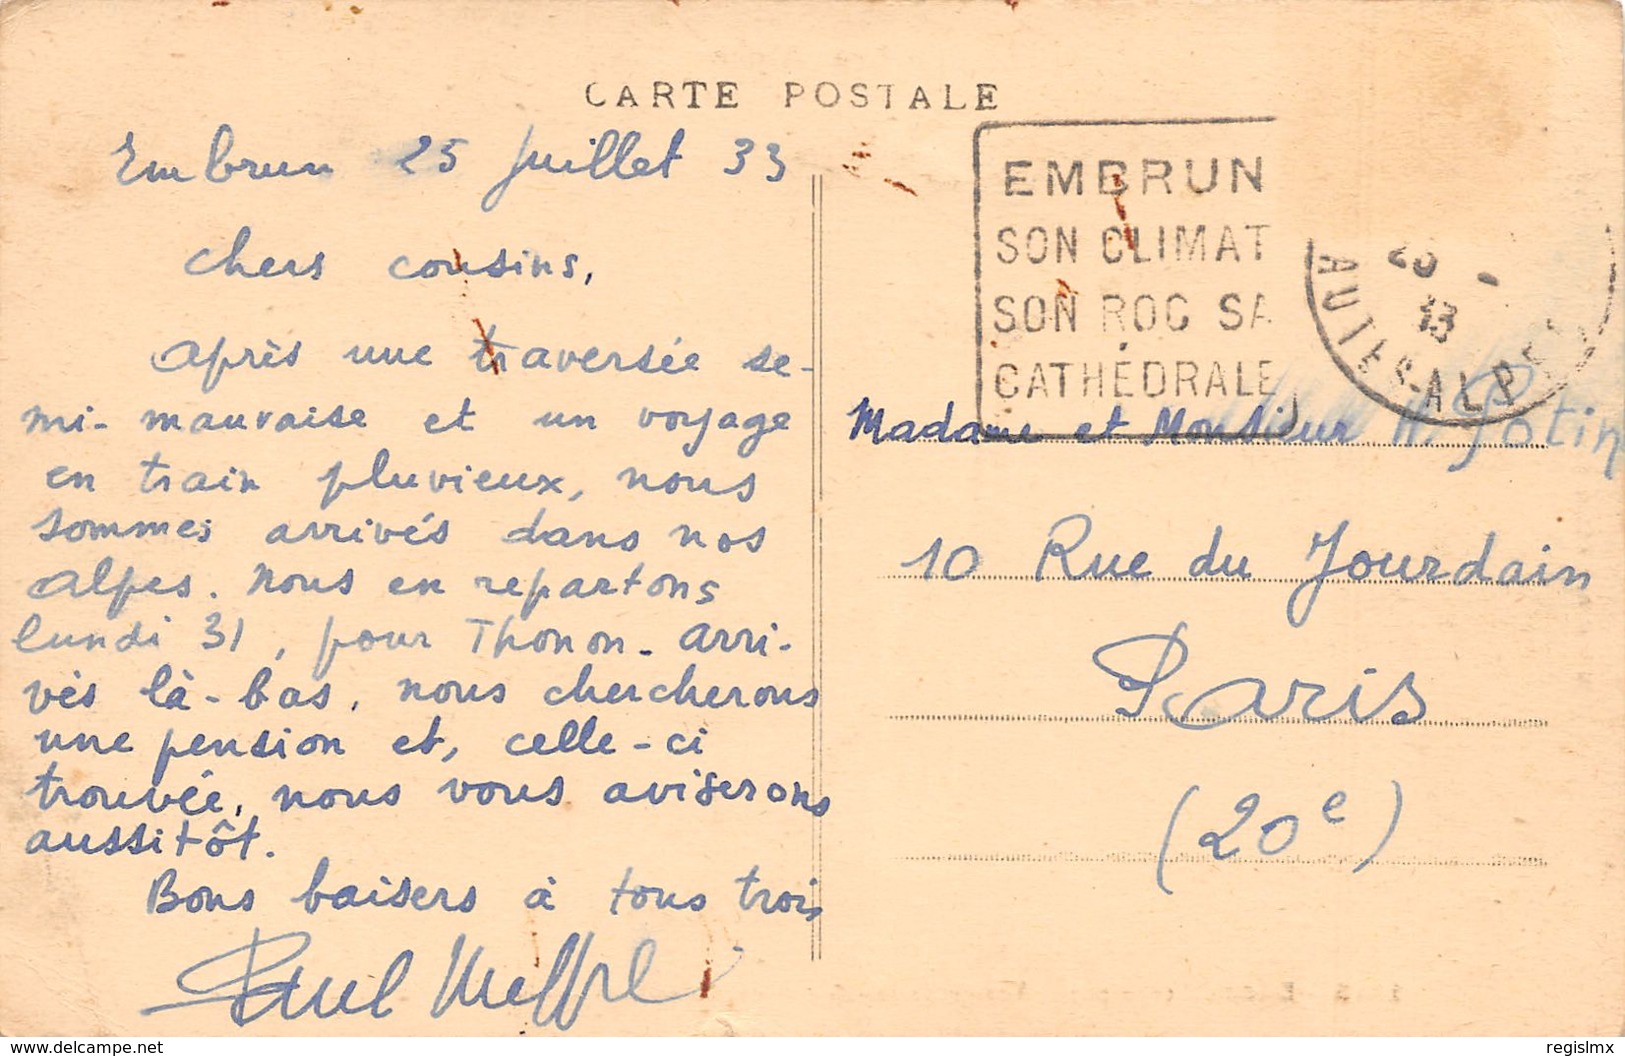 CARTE POSTALE
Embrun 25 Juillet 33
Chers cousins,
Après une traversée se-
mi-mauvaise et un voyage
en train pluvieux, nous
sommes arrivés dans nos
Alpes. Nous en repartons
lundi 31, pour Thonon. Arri-
vés là-bas, nous chercherons
une pension et, celle-ci
trouvée, nous vous aviserons
aussitôt.
Bons baisers à tous trois
Paul
EMBRUN
SON CLIMAT
SON ROC SA
CATHÉDRALE
AUTES-ALPES
Madame et Monsieur H. Potin
10 Rue du Jourdain
Paris
(20e)
www.delcampe.net
regislmx